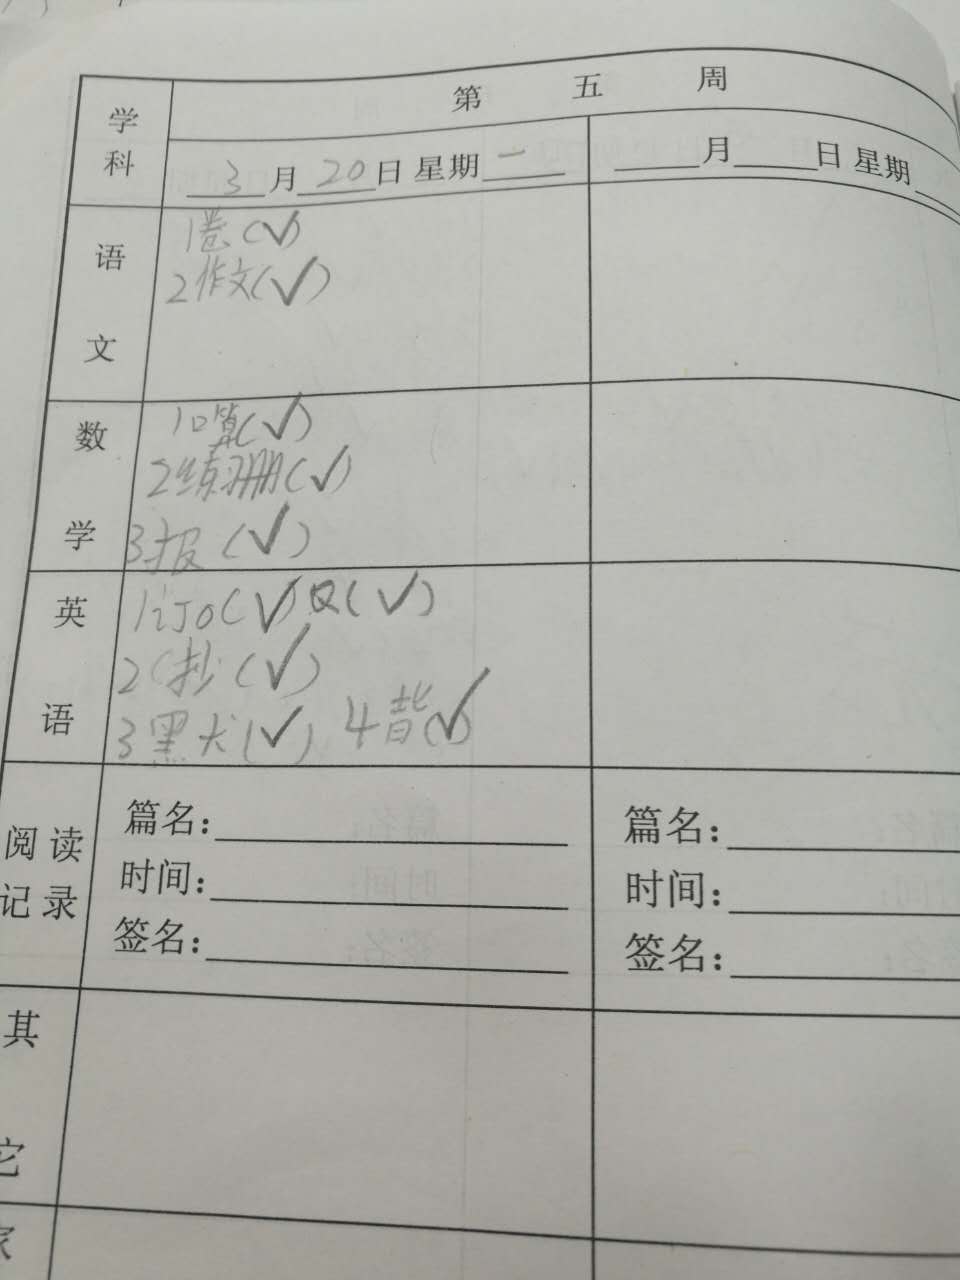 第 五 周
学科
3月20日 星期一
月 日 星期
语文
1卷(√)
2作文(√)
数学
1口算(√)
2练习册(√)
3报(√)
英语
(√) (√)
2抄(√)
3黑犬(√) 4背(√)
阅读记录
篇名:
时间:
签名:
篇名:
时间:
签名:
其它